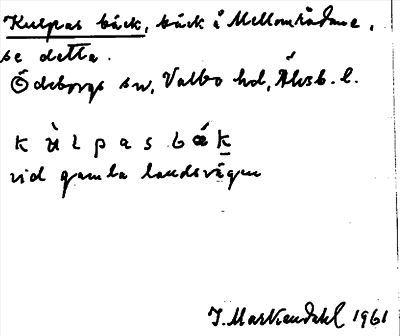 Kulpas bäck, bäck å Mellområdane,
se detta.
Ödeborgs sn, Valbo hd, Älvsb. l.
k ù l p a s b ǽ k
vid gamla landsvägen
J. Markendahl 1961